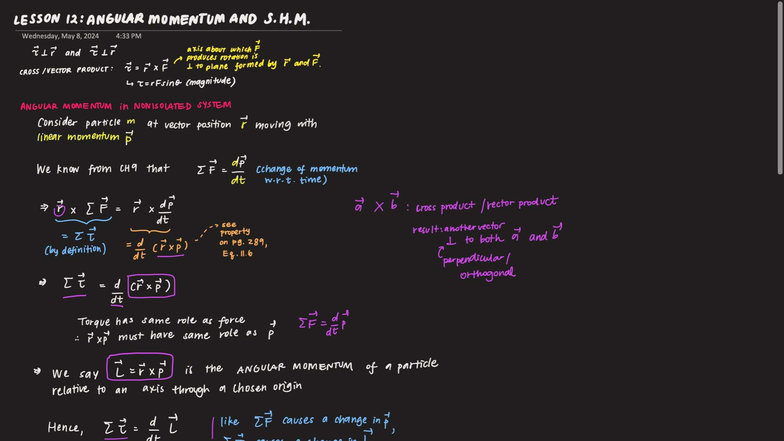 LESSON 12: ANGULAR MOMENTUM AND S.H.M.
Wednesday, May 8, 2024 4:33 PM
τ⃗ ⊥ r⃗ and τ⃗ ⊥ r⃗
CROSS/VECTOR PRODUCT: τ⃗ = r⃗ × F⃗
↳ τ = rF sinθ (magnitude)
axis about which F⃗
produces rotation is
⊥ to plane formed by r⃗ and F⃗.
ANGULAR MOMENTUM in NONISOLATED SYSTEM
Consider particle m at vector position r⃗ moving with
linear momentum p⃗
We know from CH9 that ΣF⃗ = dp⃗/dt (change of momentum
w.r.t. time)
⇒ r⃗ × ΣF⃗ = r⃗ × dp⃗/dt
= Στ⃗
(by definition)
= d/dt (r⃗×p⃗)
see
property
on pg. 289,
Eq. 11.6
a⃗ × b⃗ : cross product/vector product
result: another vector
⊥ to both a⃗ and b⃗
perpendicular/
orthogonal
⇒ Στ⃗ = d/dt (r⃗×p⃗)
Torque has same role as force
∴ r⃗×p⃗ must have same role as p⃗
ΣF⃗ = d/dt p⃗
⇒ We say L⃗ = r⃗×p⃗ is the ANGULAR MOMENTUM of a particle
relative to an axis through a chosen origin
Hence, Στ⃗ = d/dt L⃗
like ΣF⃗ causes a change in p⃗,